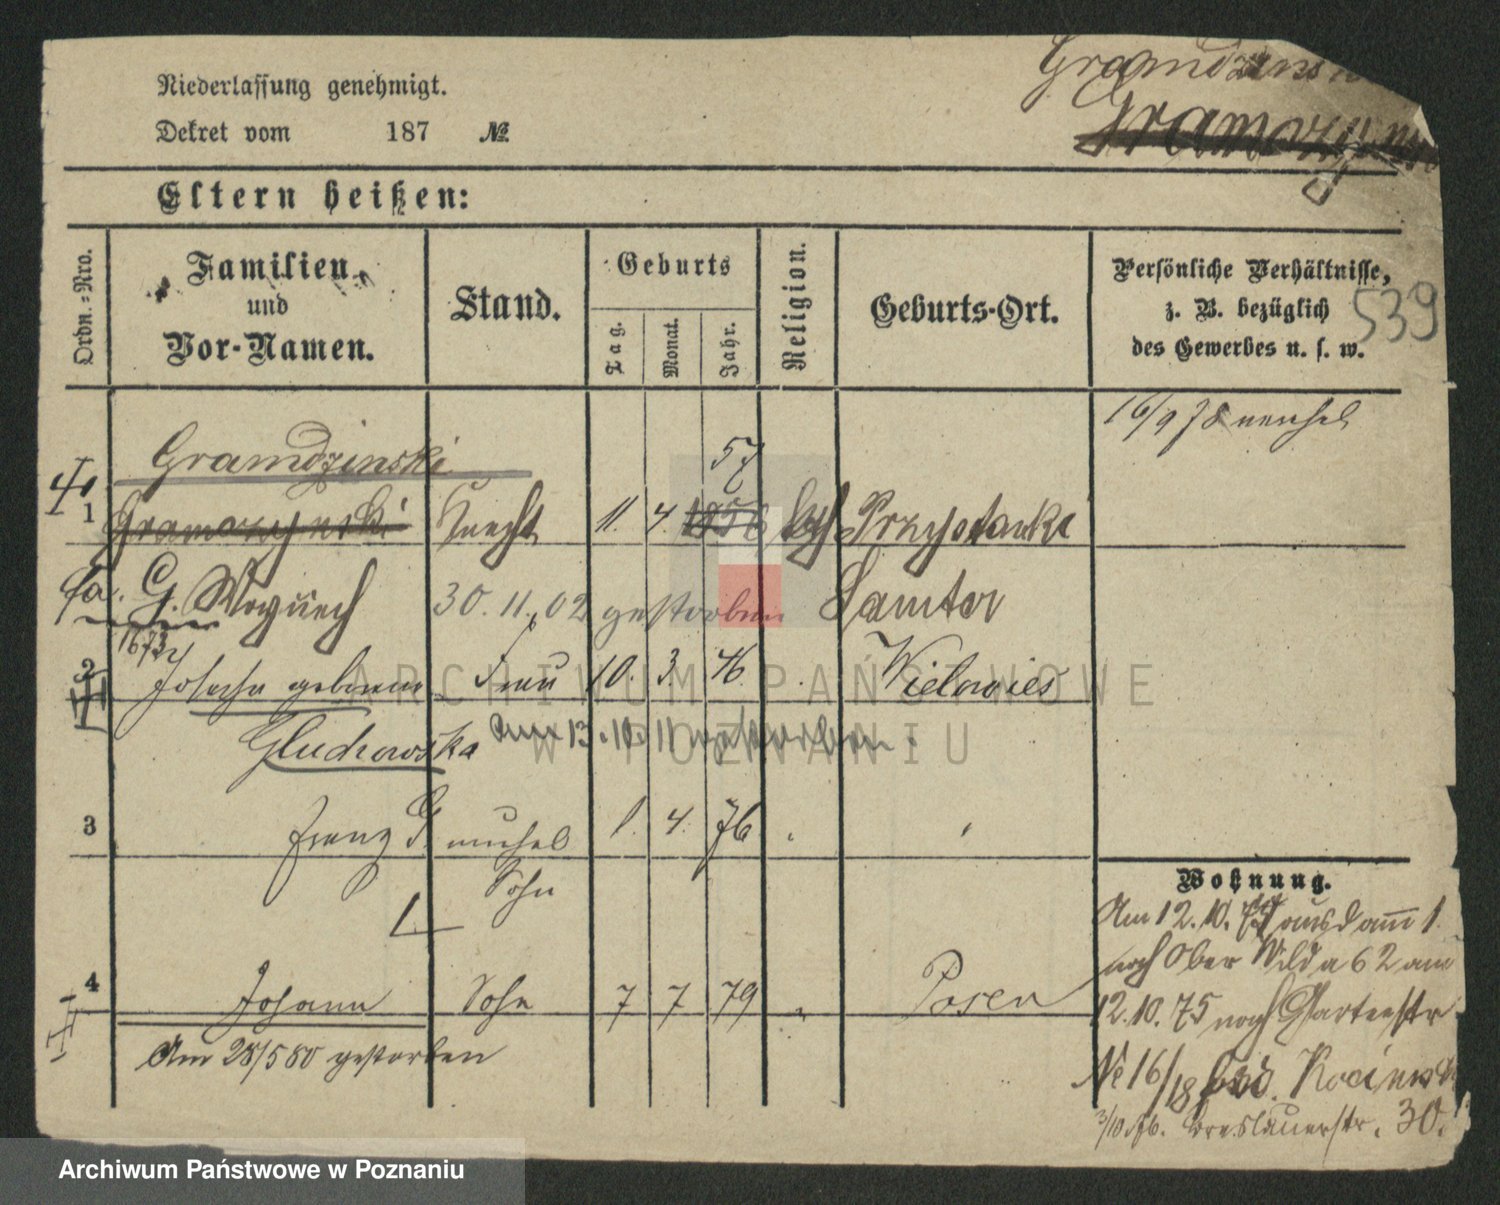 Niederlassung genehmigt.
Dekret vom 187 №
Gramdzinski
Eltern heißen:
Ordn.=Nro.
Familien
und
Vor-Namen.
Stand.
Geburts
Tag.
Monat.
Jahr.
Religion.
Geburts-Ort.
Persönliche Verhältnisse,
z. B. bezüglich
des Gewerbes u. s. w.
539
16/9 78
Gramdzinski
57
1 Knecht 11. 4. kath Przystanki
1a. G. 30.11.02 gestorben Samter
1673
2 Josepha geborene Frau 10. 3. 46 Wielowies
Gluchowska am 13.10.11 verstorben.
3 Franz G. 1. 4. 76
Sohn
4 Johann Sohn 7 7 79 Posen
Am 28/5 80 gestorben
Wohnung.
Am 12.10. aus Damm 1.
nach Ober Wilda 62 am
12.10.75 nach Gartenstr
№ 16/18
3/10.76. Breslauerstr. 30.
ARCHIWUM PAŃSTWOWE
W POZNANIU
Archiwum Państwowe w Poznaniu